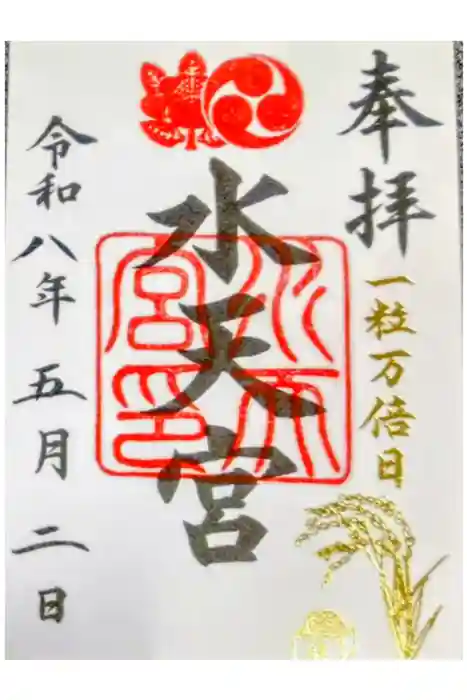 奉拝
一粒万倍日
水天宮
水天宮印
令和八年五月二日